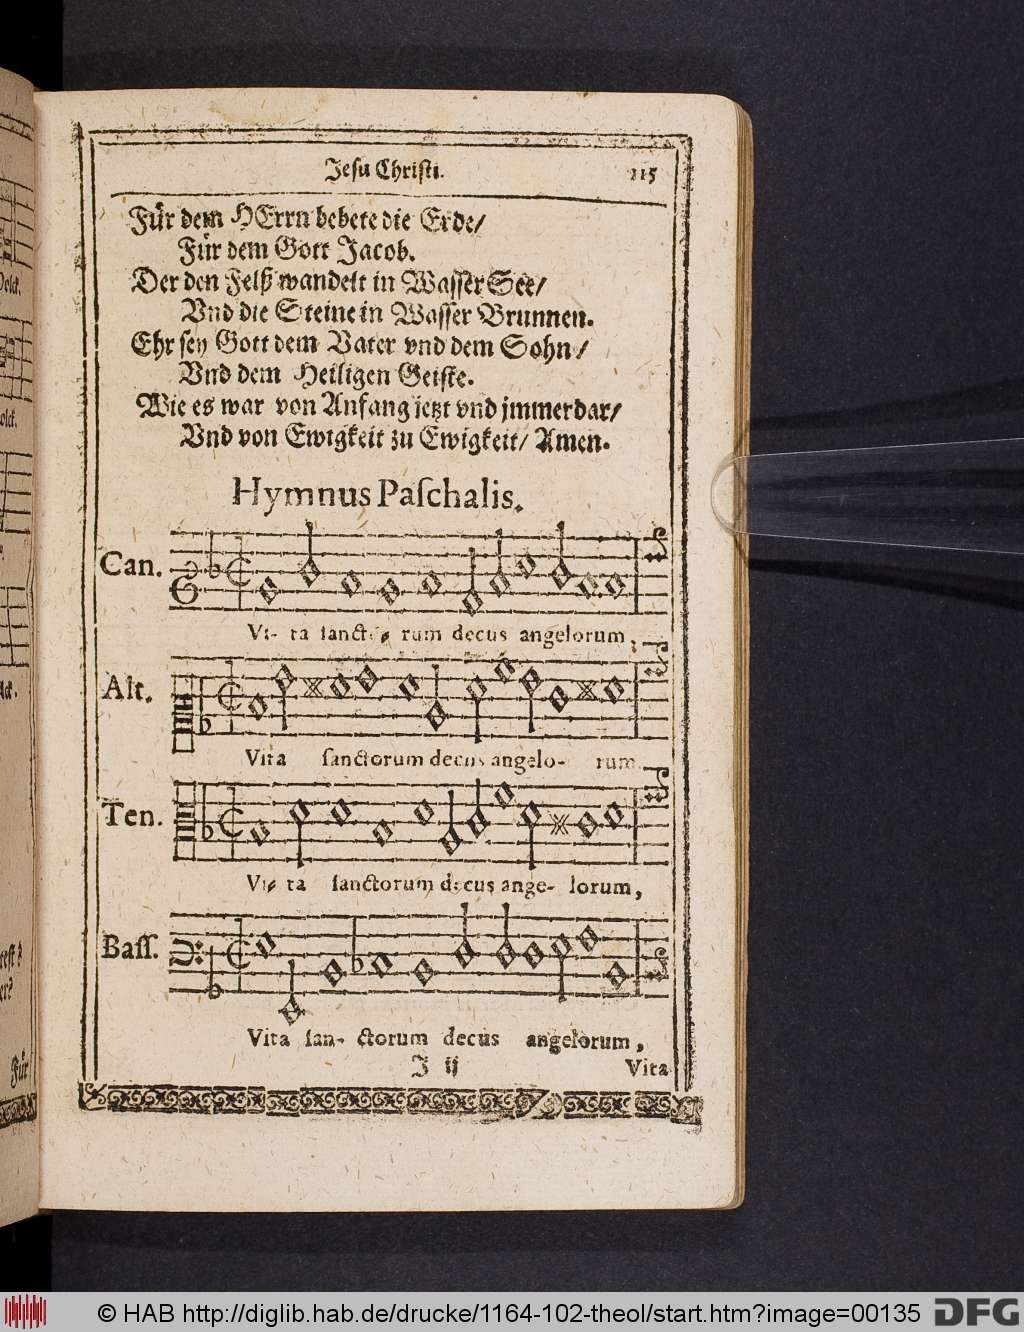 Jesu Christi. 115
Für dem HErrn bebete die Erde/
Für dem Gott Jacob.
Der den Felß wandelt in Wasser See/
Vnd die Steine in Wasser Brunnen.
Ehr sey Gott dem Vater vnd dem Sohn/
Vnd dem Heiligen Geiste.
Wie es war von Anfang jetzt vnd jmmerdar/
Vnd von Ewigkeit zu Ewigkeit/ Amen.
Hymnus Paſchalis.
Can.
Vi- ta ſancto- rum decus angelorum,
Alt.
Vita ſanctorum decus angelo- rum
Ten.
Vi- ta ſanctorum decus ange- lorum,
Baſſ.
Vita ſan- ctorum decus angelorum,
J ij Vita
Für
© HAB http://diglib.hab.de/drucke/1164-102-theol/start.htm?image=00135 DFG